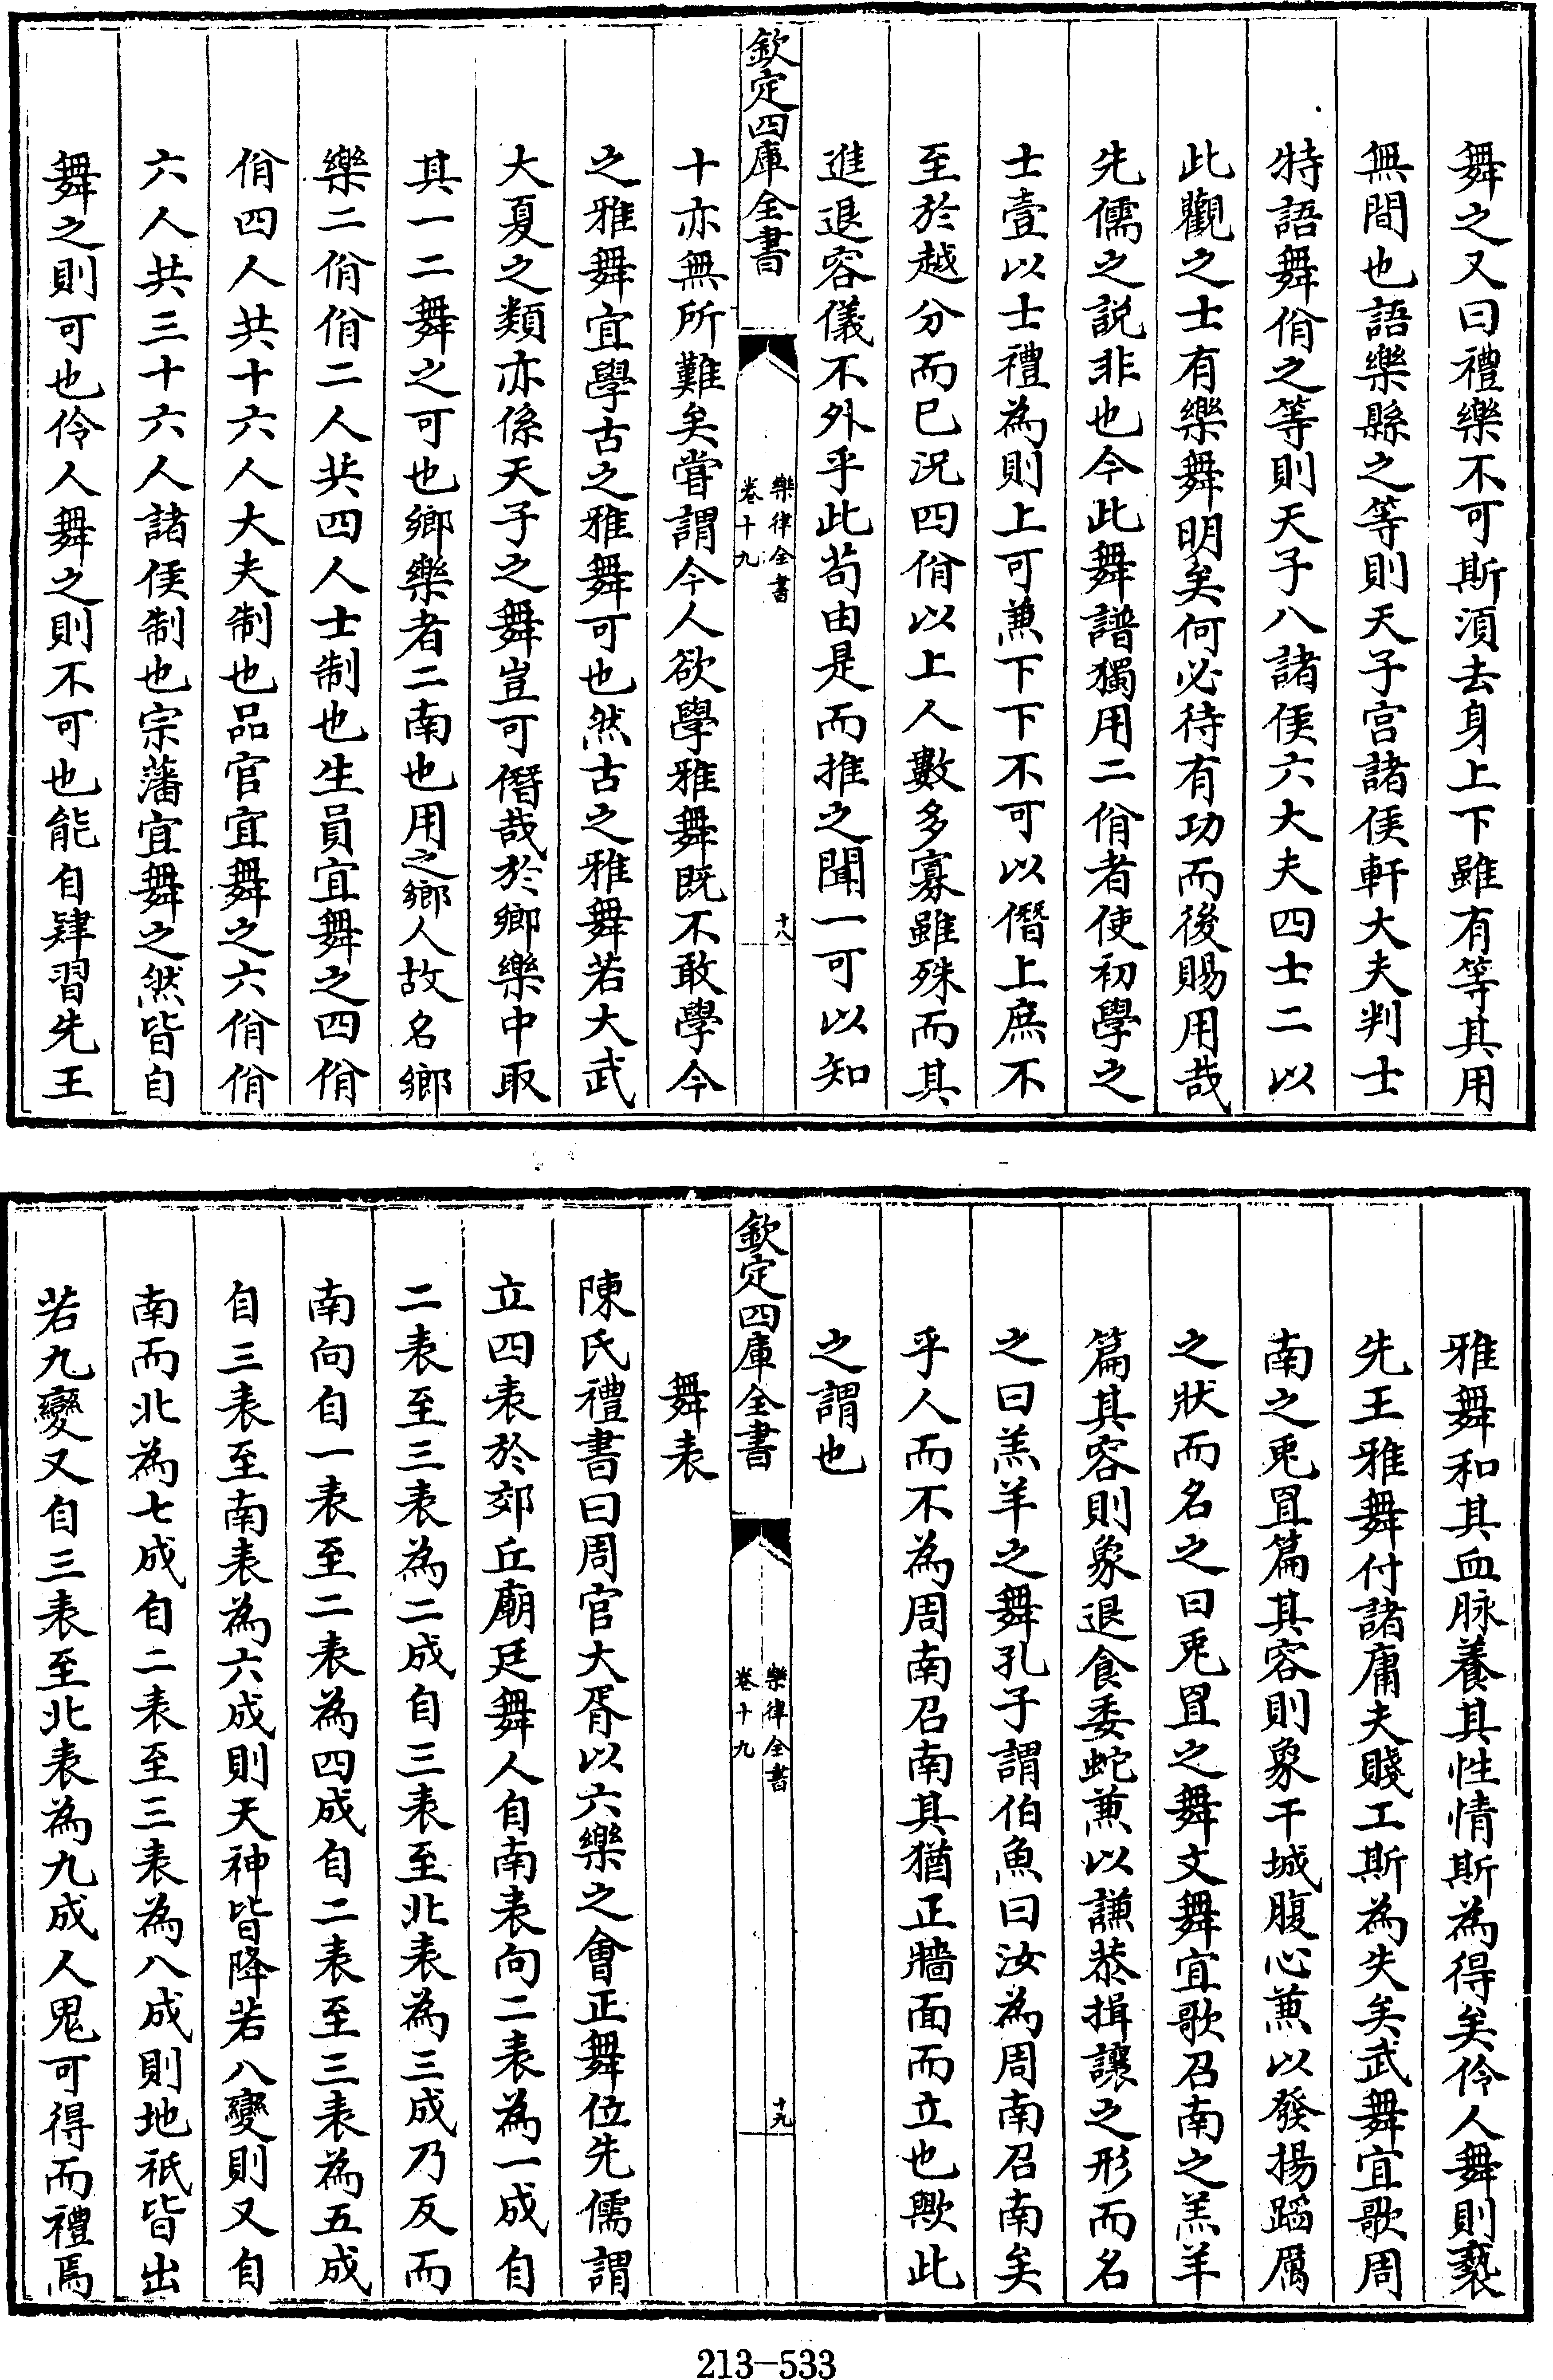 舞之又曰禮樂不可斯須去身上下雖有等其用
無間也語樂縣之等則天子宫諸侯軒大夫判士
特語舞佾之等則天子八諸侯六大夫四士二以
此觀之士有樂舞明矣何必待有功而後賜用哉
先儒之説非也今此舞譜獨用二佾者使初學之
士壹以士禮為則上可兼下下不可以僭上庶不
至於越分而已况四佾以上人數多寡雖殊而其
進退容儀不外乎此苟由是而推之聞一可以知
欽定四庫全書
樂律全書
卷十九
十八
十亦無所難矣嘗謂今人欲學雅舞既不敢學今
之雅舞宜學古之雅舞可也然古之雅舞若大武
大夏之類亦係天子之舞豈可僭哉於鄉樂中取
其一二舞之可也鄉樂者二南也用之鄉人故名鄉
樂二佾佾二人共四人士制也生員宜舞之四佾
佾四人共十六人大夫制也品官宜舞之六佾佾
六人共三十六人諸侯制也宗藩宜舞之然皆自
舞之則可也伶人舞之則不可也能自肄習先王
雅舞和其血脉養其性情斯為得矣伶人舞則褻
先王雅舞付諸庸夫賤工斯為失矣武舞宜歌周
南之兎罝篇其容則象干城腹心兼以發揚蹈厲
之狀而名之曰兎罝之舞文舞宜歌召南之羔羊
篇其容則象退食委蛇兼以謙恭揖讓之形而名
之曰羔羊之舞孔子謂伯魚曰汝為周南召南矣
乎人而不為周南召南其猶正牆面而立也歟此
之謂也
欽定四庫全書
樂律全書
卷十九
十九
舞表
陳氏禮書曰周官大胥以六樂之會正舞位先儒謂
立四表於郊丘廟廷舞人自南表向二表為一成自
二表至三表為二成自三表至北表為三成乃反而
南向自一表至二表為四成自二表至三表為五成
自三表至南表為六成則天神皆降若八變則又自
南而北為七成自二表至三表為八成則地祇皆出
若九變又自三表至北表為九成人鬼可得而禮焉
213-533